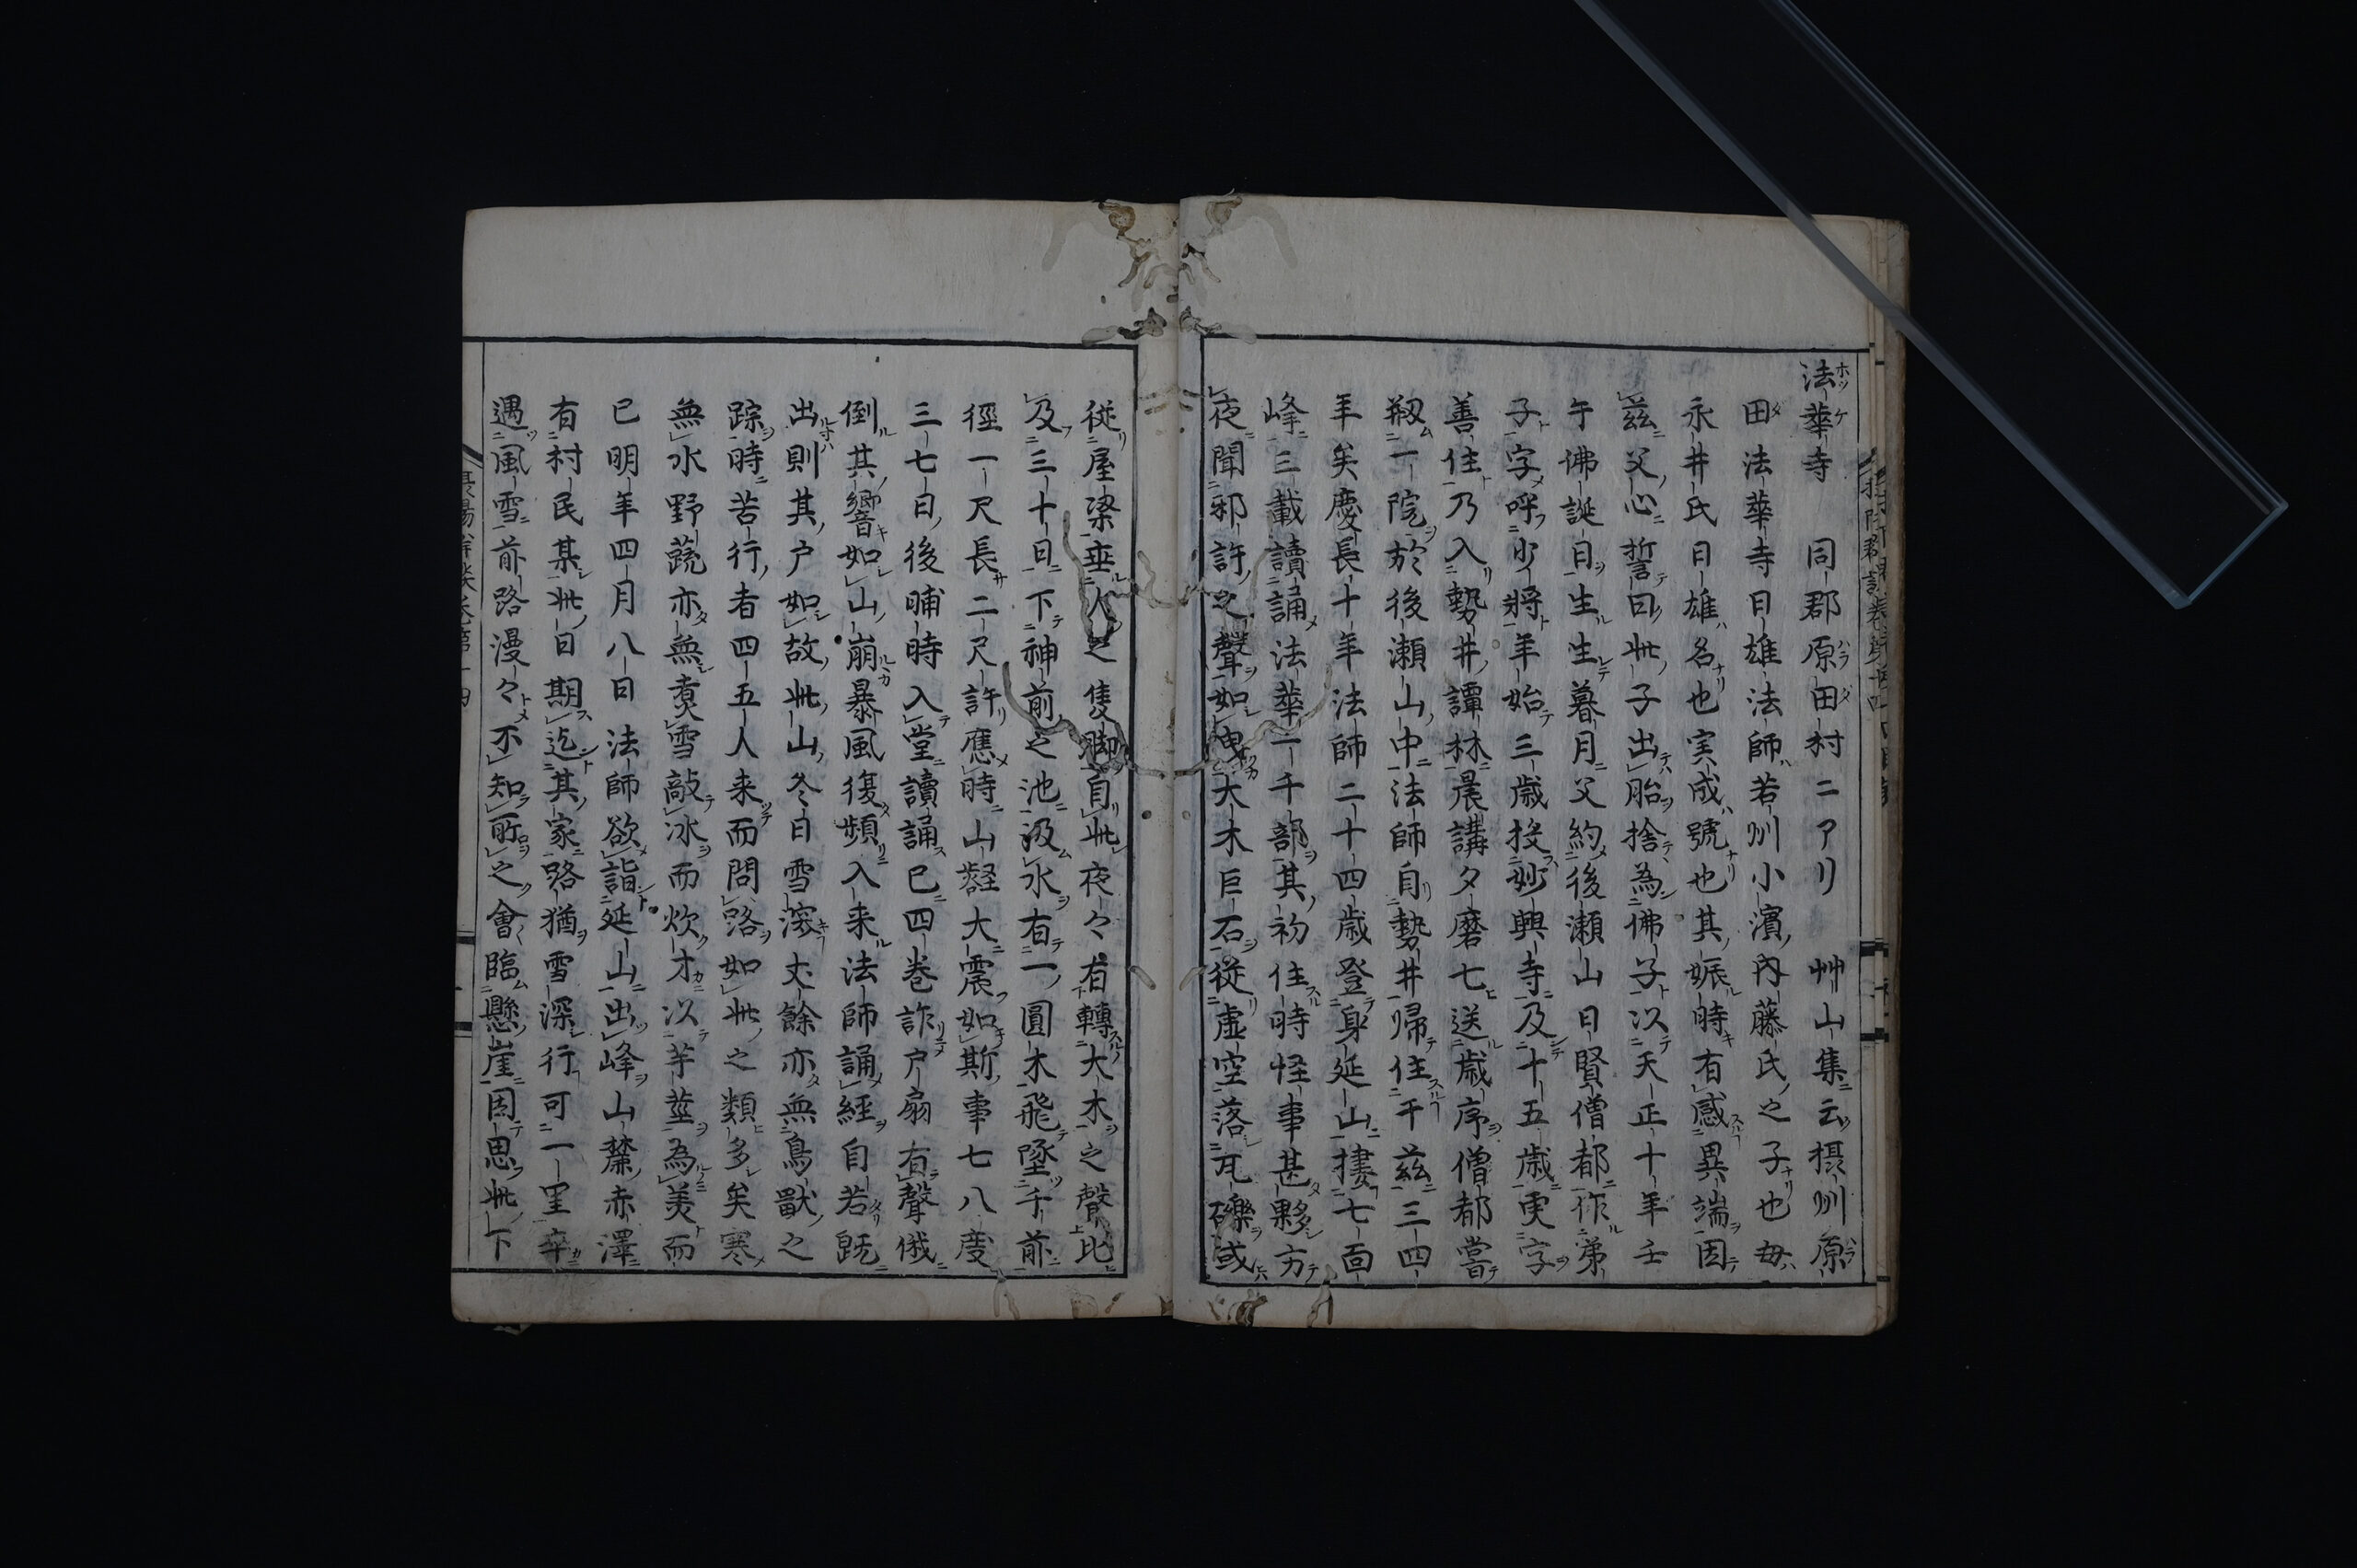 法華寺　同郡原田村ニアリ　艸山集ニ云摂州原
田法華寺日雄法師若州小濱内藤氏之子也母
永井氏日雄名也実成號也其娠時有感異端因
茲父心誓曰此子出胎捨為佛子以天正十年壬
午佛誕日生生暮月父約後瀬山日賢僧都作弟
子字呼少將年始三歳投妙興寺及十五歳更字
善住乃入勢井譚林晨講夕磨七送歳序僧都嘗
剏一院於後瀬山中法師自勢井帰住于茲三四
年矣慶長十年法師二十四歳登身延山摟七面
峰三載讀誦法華一千部其初住時怪事甚夥方
夜聞邪許之聲如曳大木巨石從虚空落瓦礫或
從屋梁垂人之隻脚自此夜々有轉大木之聲比
及三十日下神前之池汲水有一圓木飛墜于前
徑一尺長二尺許應時山壑大震如斯事七八度
三七日後晡時入堂讀誦已四巻詐戸扇有聲俄
倒其響如山崩暴風復頻入来法師誦經自若既
出則其戸如故此山冬日雪深丈餘亦無鳥獸之
踪時苦行者四五人来而問路如此之類多矣寒
無水野蔬亦無煑雪敲冰而炊才以芋莖為美而
已明年四月八日法師欲詣延山出峰山麓赤澤
有村民某此日期迄其家路猶雪深行可一里卒
遇風雪前路漫々不知所之會臨懸崖因思此下